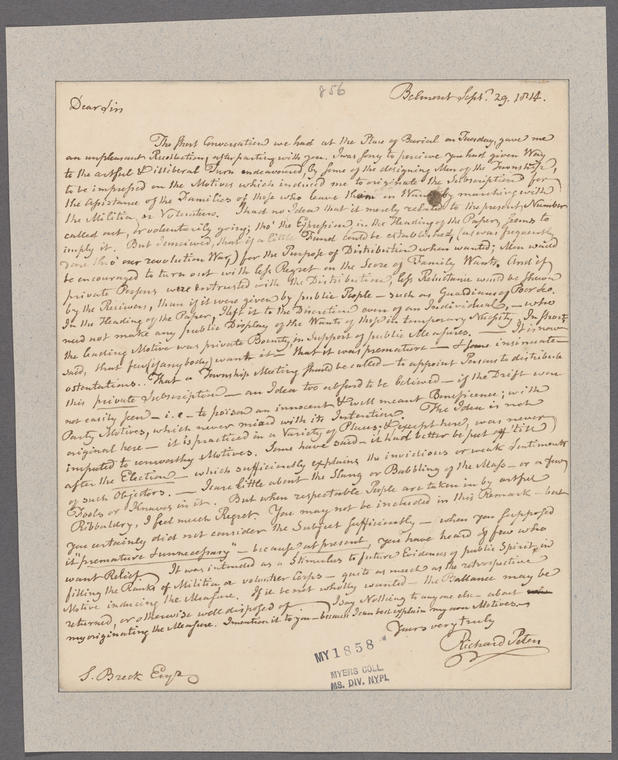 856
Belmont Sept.r 29. 1814.
Dear Sir
The short Conversation we had at the Place of Burial on Tuesday, gave me
an unpleasant Recollection, after parting with you. I was sorry to perceive you had given Way
to the artful & illiberal Turn endeavoured, by some of the designing Men of the Township,
to be impressed on the Motives which induced me to originate the Subscription for
the Assistance of the Families of those who leave them in Want by marching with
the Militia, or Volunteers. I had no Idea that it merely related to the present Number
called out, or voluntarily going; tho' the Expression in the Heading of the Paper, seems to
imply it. But I conceived, that if a little Fund could be established, (as was frequently
done thro' our revolution War) for the Purpose of Distribution when wanted; Men would
be encouraged to turn out with less Regret on the Score of Family Wants. And if
private Persons were entrusted with the Distribution, less Reluctance would be shewn
by the Receivers, than if it were given by public People — such as Guardians of Poor &c.
In the Heading of the Paper, I left it to the Discretion even of an Individual, — who
need not make any public Display of the Wants of those in temporary Necessity. In short
the leading Motive was private Bounty, in Support of public Measures. It is now
said, that few (if any body) want it — that it was premature — & some insinuate
ostentations. That a Township Meeting should be called — to appoint Persons to distribute
this private Subscription — an Idea too absurd to be believed — if the Drift were
not easily seen — i.e. — to poison an innocent & well meant Beneficence, with
Party Motives, which never mixed with its Intention. The Idea is not
original here — it is practiced in a Variety of Places; & except here, was never
imputed to unworthy Motives. Some have said — it had better be put off 'till
after the Election — which sufficiently explains the invidious or weak Sentiments
of such Objectors. — I care little about the Slang or Babbling of the Mass — or a few
Fools or Knaves in it. But when respectable People are taken in by artful
Ribbaldry, I feel much Regret. You may not be included in this Remark — but
you certainly did not consider the Subject sufficiently — when you supposed
it "premature & unnecessary" — because at present, you have heard of few who
want Relief. It was intended as a Stimulus to future Evidences of public Spirit, in
filling the Ranks of Militia or volunteer Corps — quite as much as the retrospective
Motive inducing the Measure. If it be not wholly wanted — the Ballance may be
returned, or otherwise well disposed of. I say Nothing to anyone else — about
my originating the Measure. I mention it to you — because I can best explain my own Motives.
Yours very truly
Richard Peters
S. Breck Esqr
MY 1858
MYERS COLL.
MS. DIV. NYPL